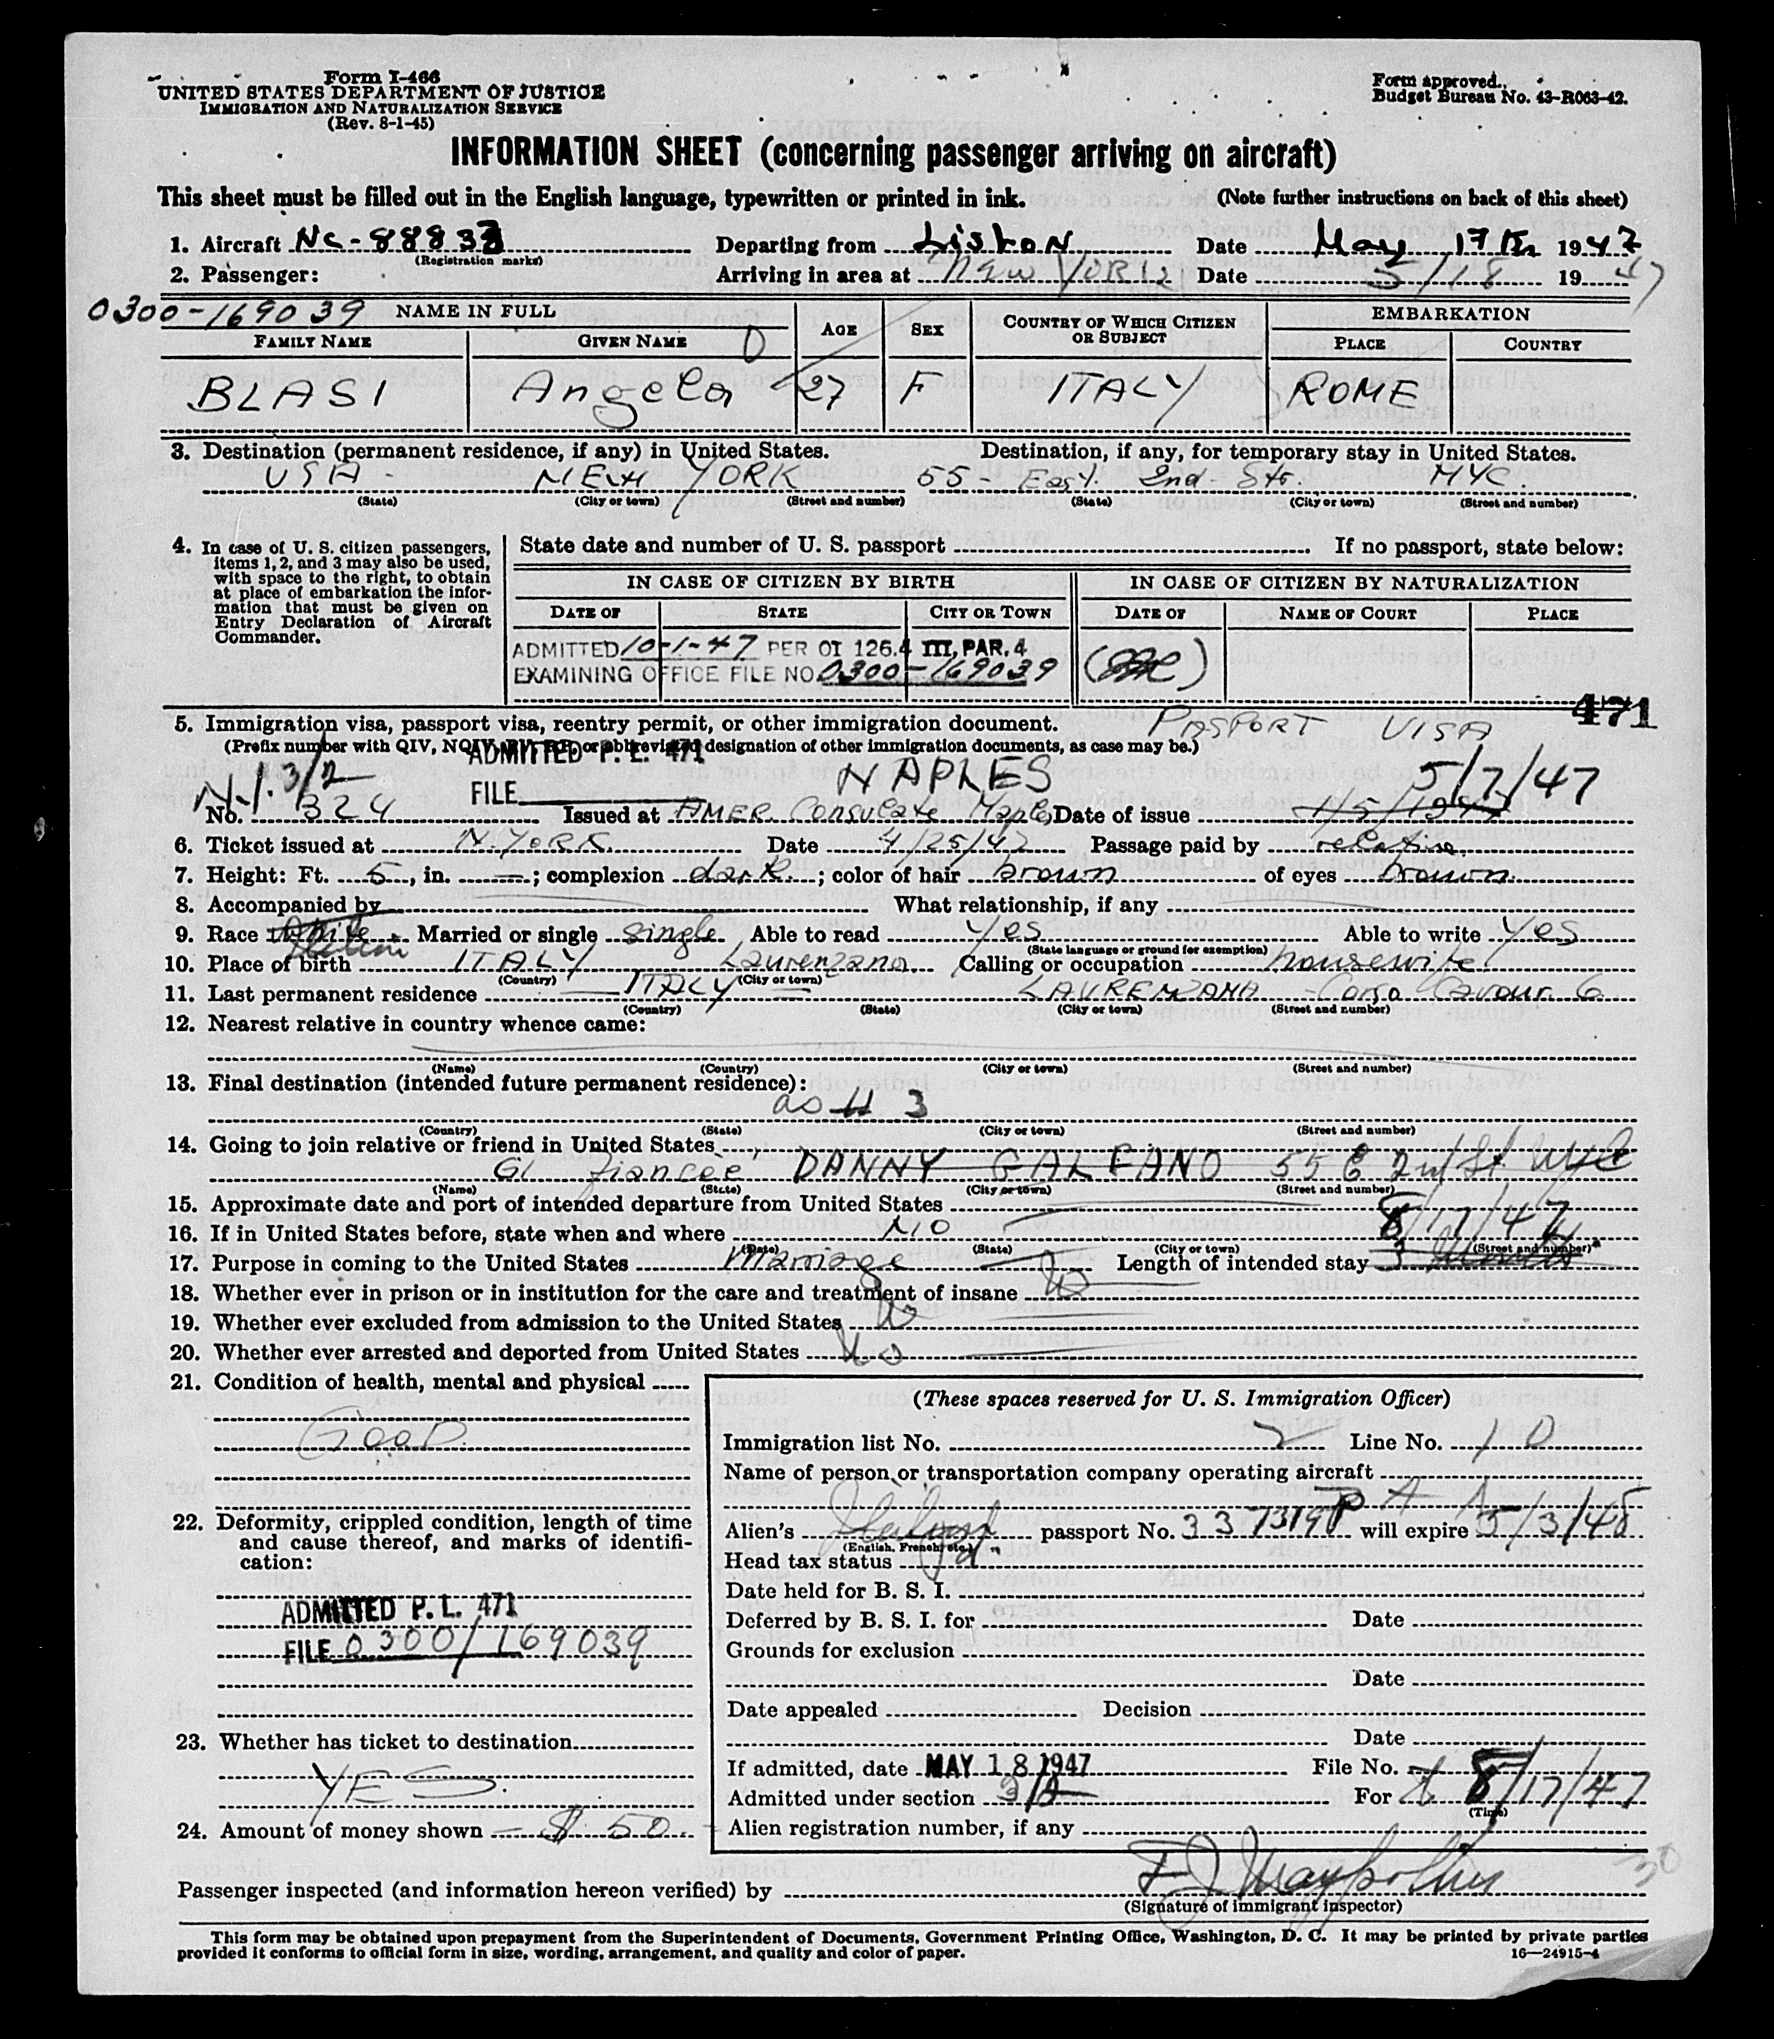 Form I-466
UNITED STATES DEPARTMENT OF JUSTICE
IMMIGRATION AND NATURALIZATION SERVICE
(Rev. 8-1-45)
Form approved.
Budget Bureau No. 43-R063-42.
INFORMATION SHEET (concerning passenger arriving on aircraft)
This sheet must be filled out in the English language, typewritten or printed in ink. (Note further instructions on back of this sheet)
1. Aircraft NC-88833 Departing from Lisbon Date May 17th 1947
(Registration marks)
2. Passenger: Arriving in area at New York Date 5/18 1947
0300-169039 NAME IN FULL AGE SEX COUNTRY OF WHICH CITIZEN OR SUBJECT EMBARKATION
FAMILY NAME GIVEN NAME PLACE COUNTRY
BLASI Angela 27 F ITALY ROME
3. Destination (permanent residence, if any) in United States. Destination, if any, for temporary stay in United States.
USA - NEW YORK 55 - East. 2nd - Str. NYC.
(State) (City or town) (Street and number) (State) (City or town) (Street and number)
4. In case of U. S. citizen passengers, items 1, 2, and 3 may also be used, with space to the right, to obtain at place of embarkation the information that must be given on Entry Declaration of Aircraft Commander.
State date and number of U. S. passport If no passport, state below:
IN CASE OF CITIZEN BY BIRTH IN CASE OF CITIZEN BY NATURALIZATION
DATE OF STATE CITY OR TOWN DATE OF NAME OF COURT PLACE
ADMITTED 10-1-47 PER OI 126.4 III, PAR. 4
EXAMINING OFFICE FILE NO. 0300-169039
471
5. Immigration visa, passport visa, reentry permit, or other immigration document. PASPORT VISA
(Prefix number with QIV, NQIV, PV, RP, or abbreviated designation of other immigration documents, as case may be.)
ADMITTED P. L. 471
NAPLES 5/7/47
FILE
No. 324 Issued at AMER. Consulate Naples Date of issue 1/5/1947
6. Ticket issued at N. YORK. Date 4/25/47 Passage paid by relative.
7. Height: Ft. 5, in. —; complexion dark; color of hair brown of eyes brown.
8. Accompanied by What relationship, if any
9. Race White Italian Married or single single Able to read Yes Able to write Yes
(State language or ground for exemption)
10. Place of birth ITALY Laurenzana Calling or occupation housewife
(Country) (City or town)
11. Last permanent residence ITALY LAURENZANA - Corso Cavour. 6
(Country) (State) (City or town) (Street and number)
12. Nearest relative in country whence came:
(Name) (Country) (City or town) (Street and number)
13. Final destination (intended future permanent residence):
as # 3
(Country) (State) (City or town) (Street and number)
14. Going to join relative or friend in United States
GI fiancée DANNY GALFANO 55 E 2nd St NYC
(Name) (State) (City or town) (Street and number)
15. Approximate date and port of intended departure from United States
16. If in United States before, state when and where NO 8/17/47
(Date) (State) (City or town) (Street and number)
17. Purpose in coming to the United States Marriage Length of intended stay 3 Months
18. Whether ever in prison or in institution for the care and treatment of insane No
19. Whether ever excluded from admission to the United States No
20. Whether ever arrested and deported from United States No
21. Condition of health, mental and physical
GOOD
22. Deformity, crippled condition, length of time and cause thereof, and marks of identification:
ADMITTED P. L. 471
FILE 0300/169039
23. Whether has ticket to destination
YES.
24. Amount of money shown — $ 50
(These spaces reserved for U. S. Immigration Officer)
Immigration list No. 2 Line No. 10
Name of person or transportation company operating aircraft
P A A
Alien's Italian passport No. 337319P will expire 5/3/48
(English, French, etc.)
Head tax status
Date held for B. S. I.
Deferred by B. S. I. for Date
Grounds for exclusion
Date
Date appealed Decision
Date
If admitted, date MAY 18 1947 File No.
Admitted under section 3/2 For 8/17/47
(Time)
Alien registration number, if any
30
Passenger inspected (and information hereon verified) by
(Signature of immigrant inspector)
This form may be obtained upon prepayment from the Superintendent of Documents, Government Printing Office, Washington, D. C. It may be printed by private parties
provided it conforms to official form in size, wording, arrangement, and quality and color of paper. 16—24915-4